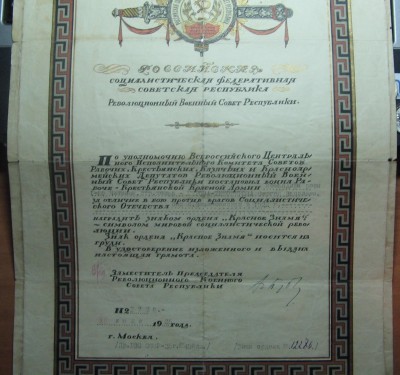 Российская
социалистическая федеративная
советская республика
Революционный Военный Совет Республики.
По уполномочию Всероссийского Централь-
ного Исполнительного Комитета Советов
Рабочих, Крестьянских, Казачьих и Красноар-
мейских Депутатов Революционный Воен-
ный Совет Республики постановил воина Ра-
боче-Крестьянской Красной Армии
за отличие в бою против врагов Социалистичес-
кого Отечества
наградить знаком ордена „Красное Знамя"
– символом мировой социалистической рево-
люции.
Знак ордена „Красное Знамя" носится на
груди.
В удостоверение изложенного и выдана
настоящая грамота.
Заместитель Председателя
Революционного Военного
Совета Республики
192 года.
г. Москва.